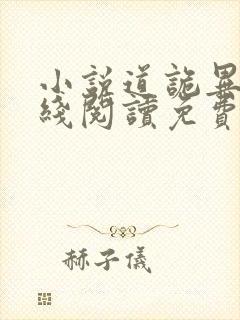 小说道詭異
綫閱讀免費
赫子儀